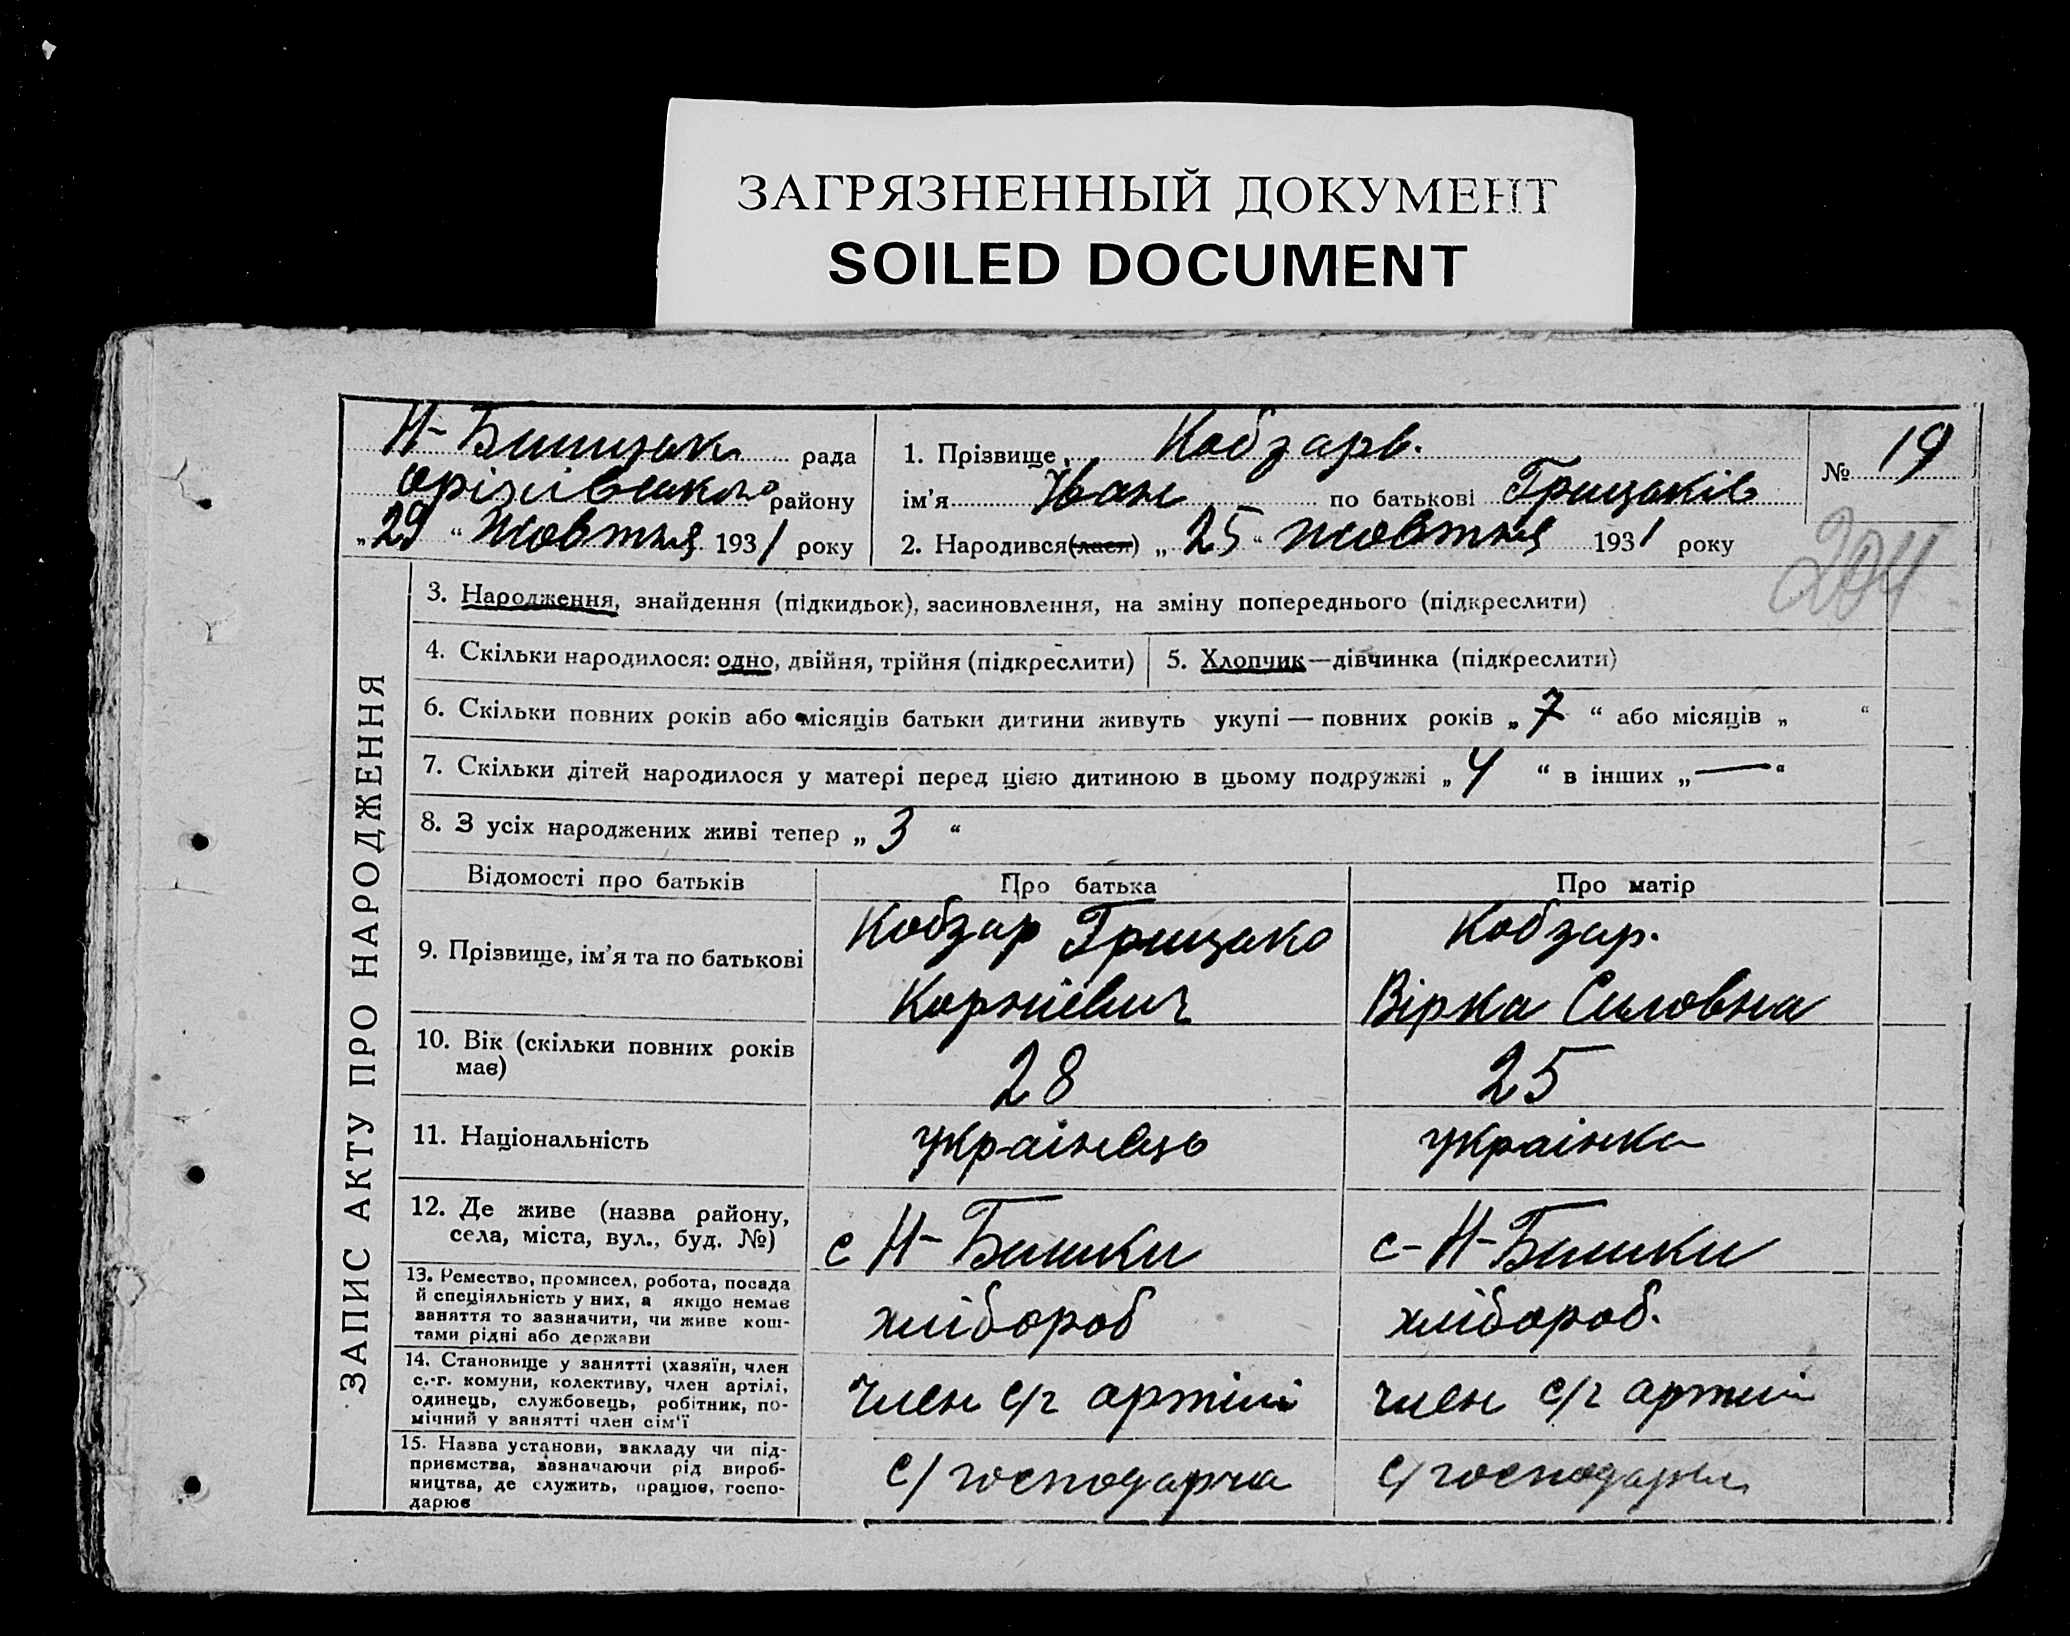 ЗАГРЯЗНЕННЫЙ ДОКУМЕНТ
SOILED DOCUMENT
Н-Бишцьк рада
орілівського району
„29“ Жовтня 1931 року
1. Прізвище Кобзарь.
ім’я Іван по батькові Грицьків
2. Народився(лася) „25“ жовтня 1931 року
№ 19
204
ЗАПИС АКТУ ПРО НАРОДЖЕННЯ
3. Народження, знайдення (підкидьок), засиновлення, на зміну попереднього (підкреслити)
4. Скільки народилося: одно, двійня, трійня (підкреслити)
5. Хлопчик—дівчинка (підкреслити)
6. Скільки повних років або місяців батьки дитини живуть укупі — повних років „7“ або місяців „ “
7. Скільки дітей народилося у матері перед цією дитиною в цьому подружжі „4“ в інших „—“
8. З усіх народжених живі тепер „3“
Відомості про батьків Про батька Про матір
9. Прізвище, ім’я та по батькові
Кобзар Грицько
Корнієвич
Кобзар.
Вірка Силовна
10. Вік (скільки повних років
має)
28
25
11. Національність
українець
українка
12. Де живе (назва району,
села, міста, вул., буд. №)
с Н-Бишки
с-Н-Бишки
13. Ремество, промисел, робота, посада
й спеціяльність у них, а якщо немає
заняття то зазначити, чи живе кош-
тами рідні або держави
хлібороб
хлібороб.
14. Становище у занятті (хазяїн, член
с.-г. комуни, колективу, член артілі,
одинець, службовець, робітник, по-
мічний у занятті член сім’ї
член с/г артіли
член с/г артили
15. Назва установи, закладу чи під-
приємства, зазначаючи рід вироб-
ництва, де служить, працює, госпо-
дарює
с/господарча
с/господарча